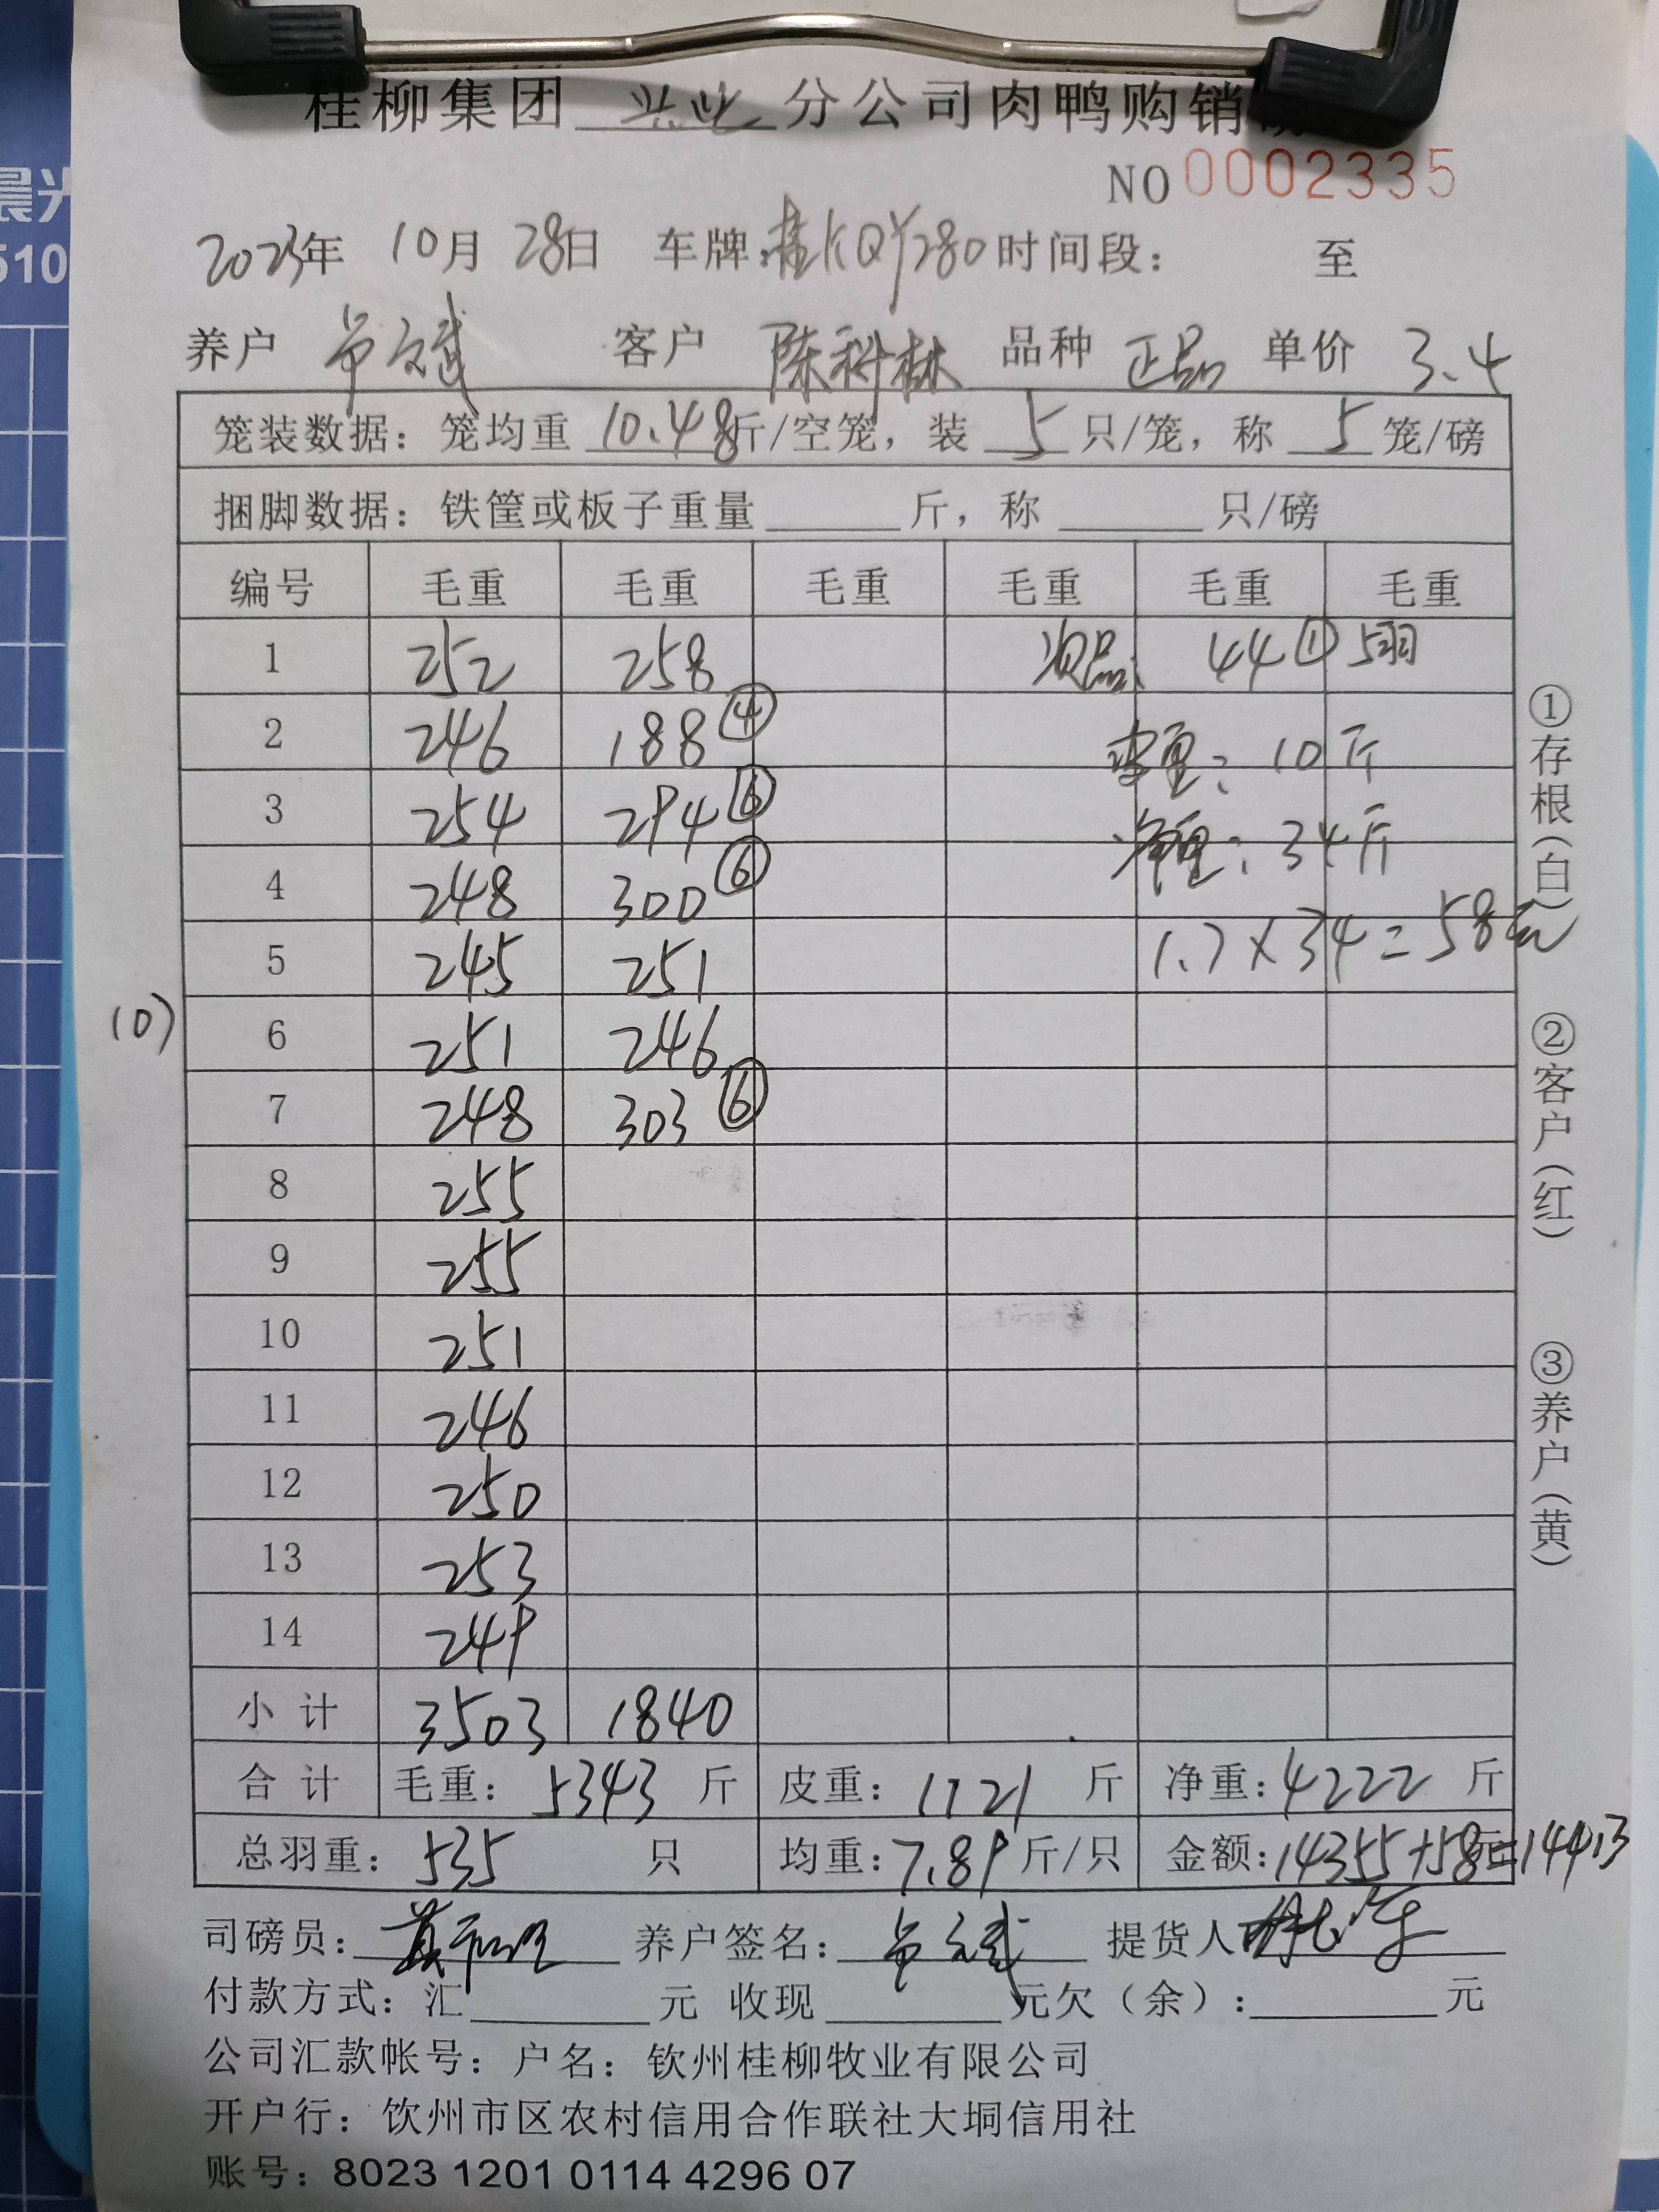 桂柳集团 兴业 分公司肉鸭购销
NO 0002335
2023年 10月 28日 车牌:桂KQY280 时间段: 至
养户 客户 陈科林 品种 正品 单价 3.4
笼装数据: 笼均重 10.48 斤/空笼, 装 5 只/笼, 称 5 笼/磅
捆脚数据: 铁筐或板子重量 斤, 称 只/磅
编号 毛重 毛重 毛重 毛重 毛重 毛重
1 252 258 次品: 44 ① 5羽
2 246 188 ④ 皮重: 10斤
3 254 294 ⑥ 净重: 34斤
4 248 300 ⑥
5 245 251 1.7×34=58元
(0)
6 251 246
7 248 303 ⑥
8 255
9 255
10 251
11 246
12 250
13 253
14 249
小计 3503 1840
合计 毛重: 5343 斤 皮重: 1121 斤 净重: 4222 斤
总羽重: 535 只 均重: 7.89 斤/只 金额: 14355+58元=14413
司磅员: 养户签名: 提货人
付款方式: 汇 元 收现 元欠(余): 元
公司汇款帐号: 户名: 钦州桂柳牧业有限公司
开户行: 钦州市区农村信用合作联社大垌信用社
账号: 8023 1201 0114 4296 07
①存根(白)
②客户(红)
③养户(黄)
晨光
510